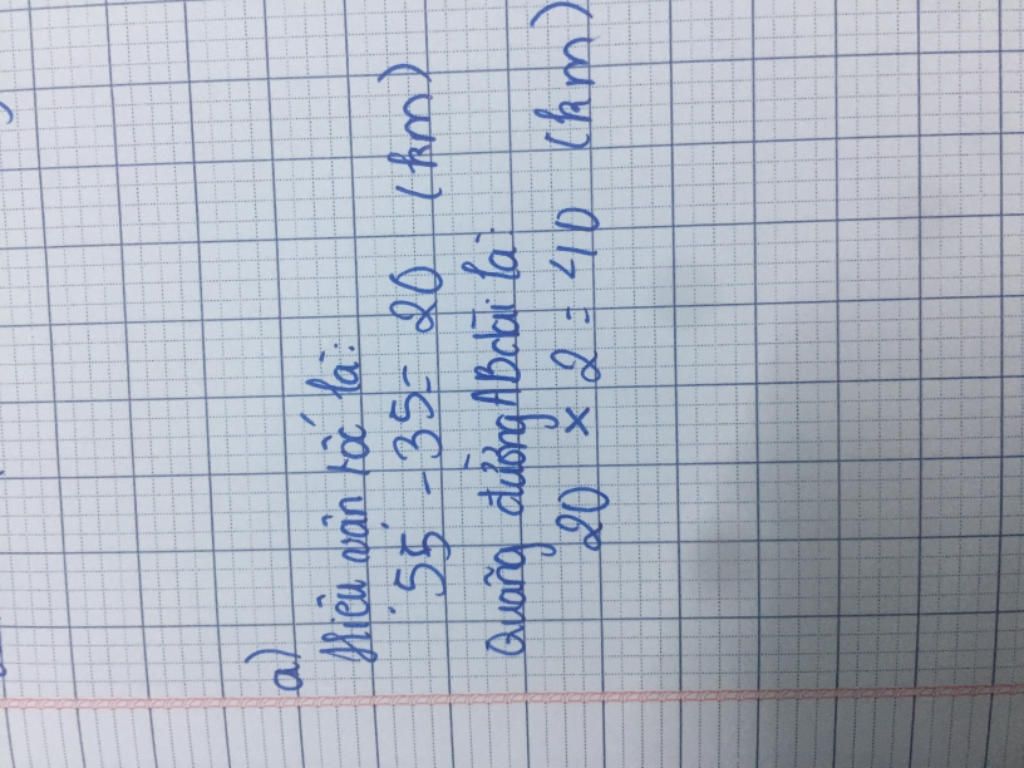 a)
Hiệu vận tốc là:
55 - 35 = 20 (km)
Quãng đường AB dài là:
20 x 2 = 40 (km)